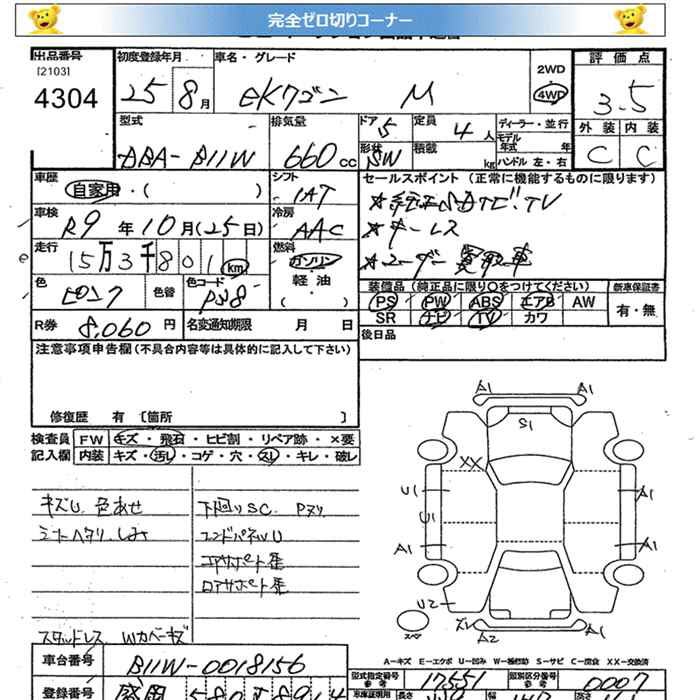 完全ゼロ切りコーナー
出品番号
[2103]
4304
初度登録年月
25 8月
車名・グレード
EKワゴン M
2WD
4WD
評価点
3.5
外装 内装
C C
型式
DBA-B11W
排気量
660cc
ドア
5
定員
4人
形状
SW
積載
kg
ディーラー・並行
モデル年式 年
ハンドル 左・右
車歴
自家用・( )
シフト
IAT
セールスポイント (正常に機能するものに限ります)
☆純正SDナビ.TV
☆キーレス
☆ユーザー買取車
車検
R9年10月(25日)
冷房
AAC
走行
15万3千801km
燃料
ガソリン
軽油
( )
色
ピンク
色替
色コード
P38
装備品 (純正品に限り○をつけてください)
新車保証書
PS PW ABS エアB AW
SR ナビ TV カワ
有・無
R券 8,060円
名変通知期限 月 日
後日品
注意事項申告欄(不具合内容等は具体的に記入して下さい)
修復歴 有 [箇所 ]
検査員記入欄
FW キズ・飛石・ヒビ割・リペア跡・×要
内装 キズ・汚レ・コゲ・穴・スレ・キレ・破レ
キズU 色あせ
シートヘタリ.しみ
下回りSC. Pヌリ
エンドパネルU
コアサポート歪
ロアサポート歪
スタッドレス Wカバーキズ
A1 A1
S1
XX
U1 A1
U1
A1 A1
U2
A2 A1
スペア
A-キズ E-エクボ U-凹み W-補修跡 S-サビ C-腐食 XX-交換済
車台番号
B11W-0018156
型式指定番号
参考
17551
類別区分番号
参考
0007
登録番号
盛岡 580
車庫証明用
参考
長さ
幅
高さ